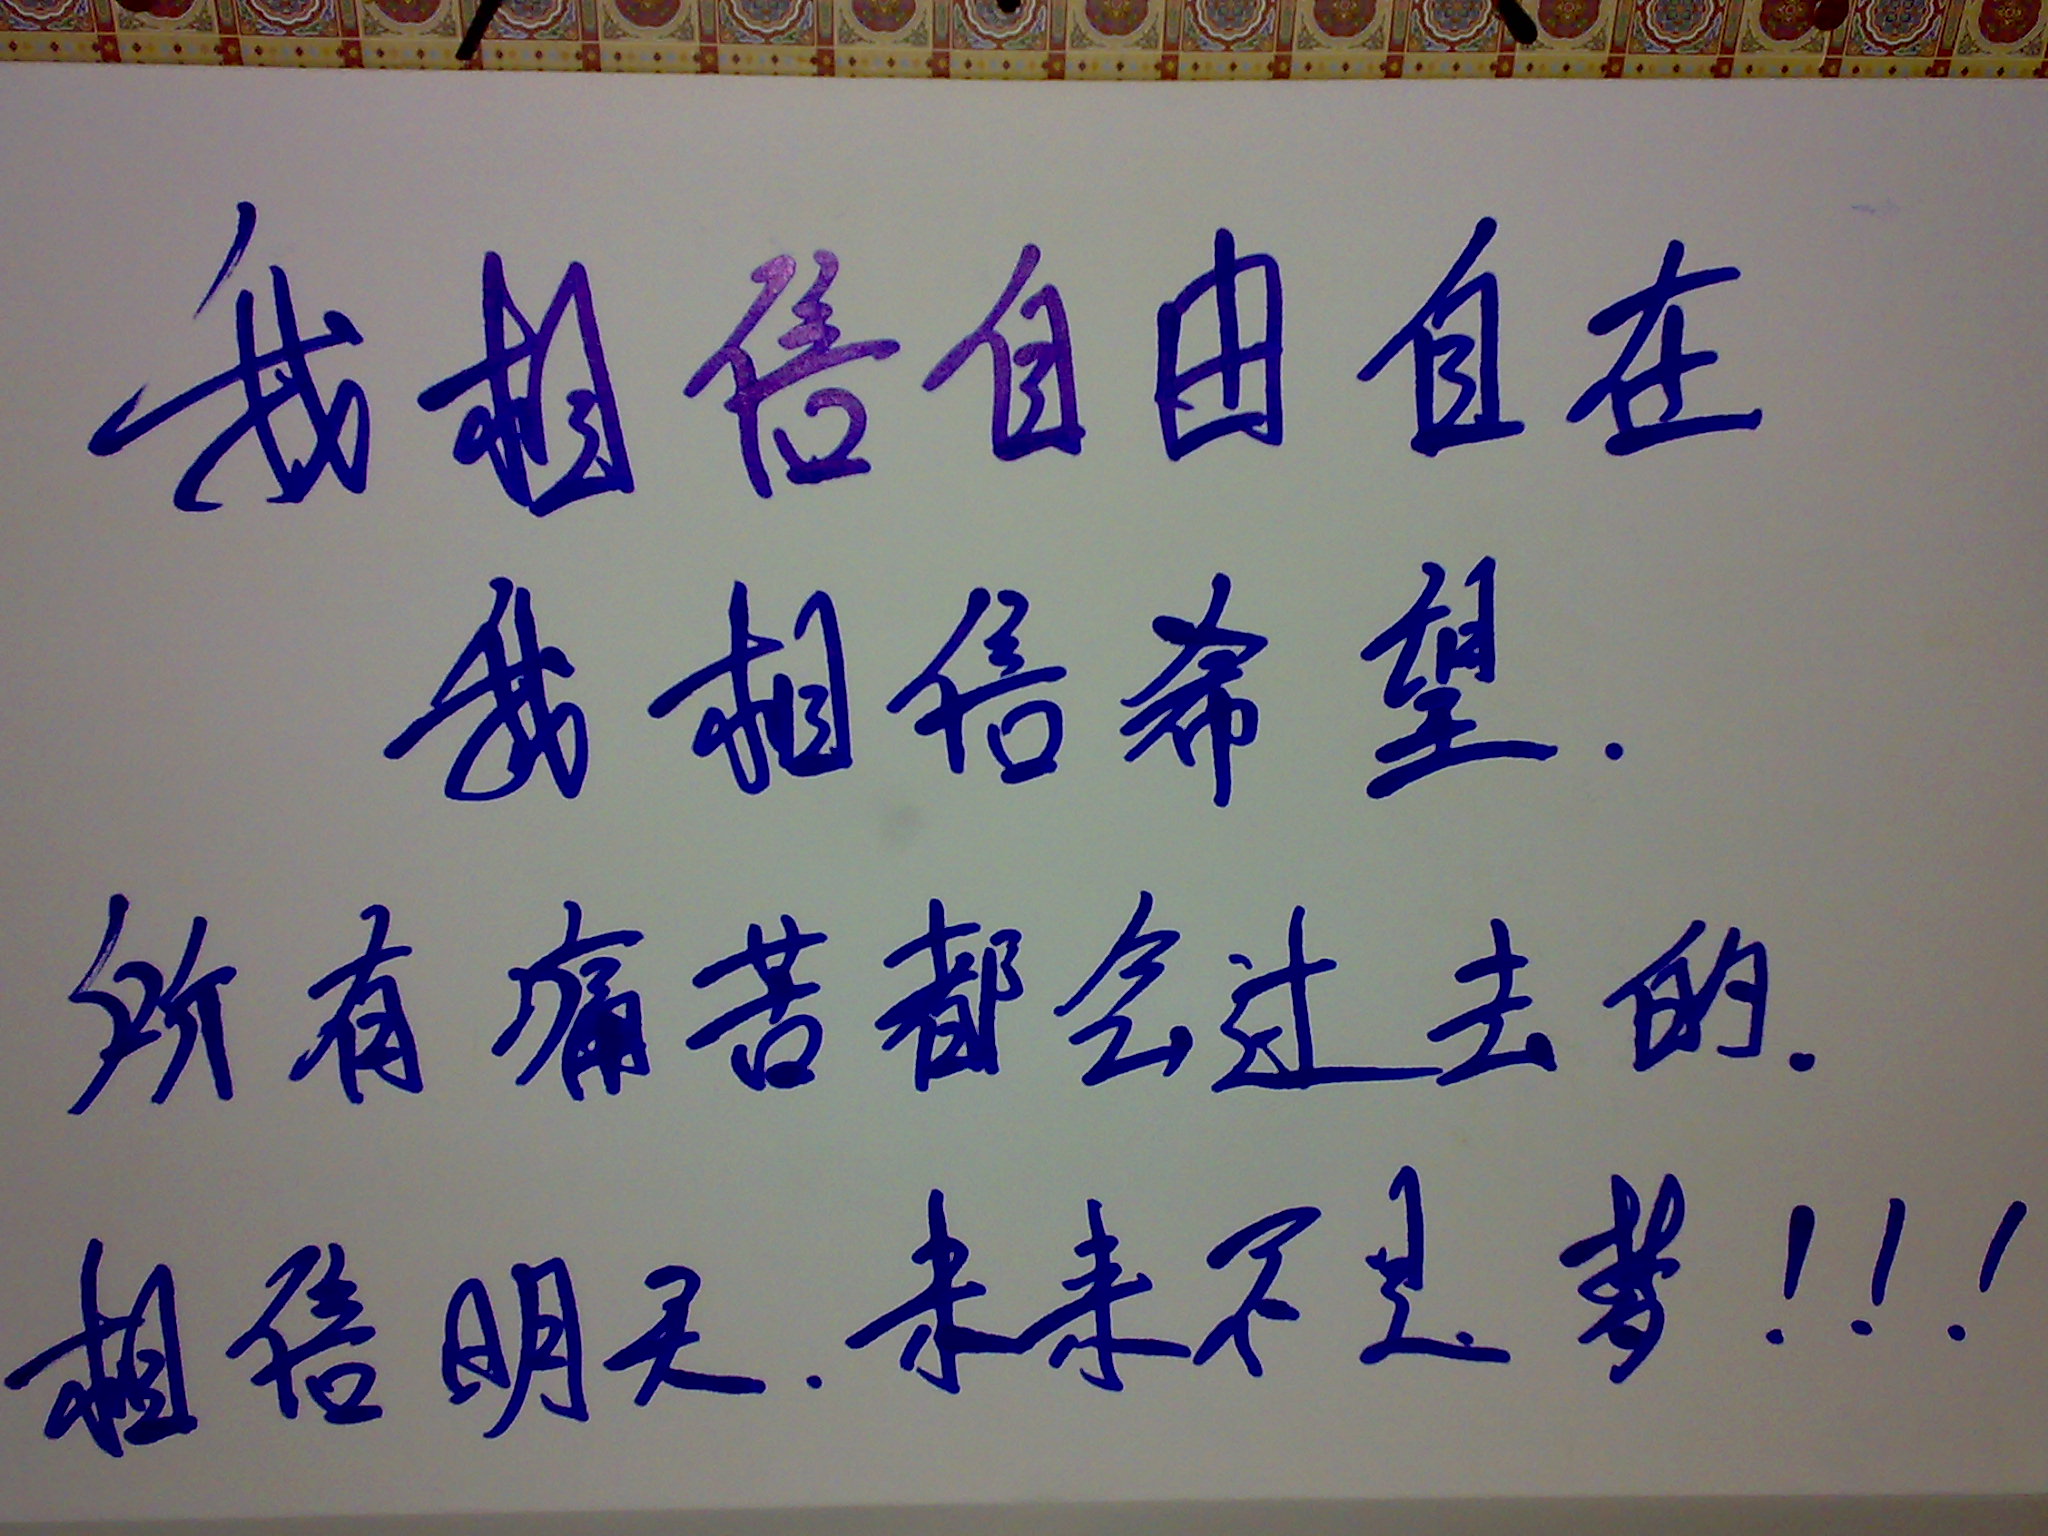 我相信自由自在
我相信希望.
所有痛苦都会过去的.
相信明天.未来不是梦!!!